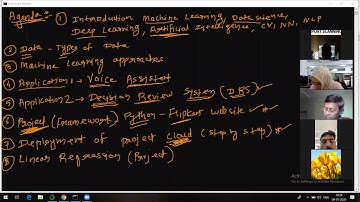 Agenda:- ① Introduction Machine Learning, Data Science,
Deep Learning, Artificial Intelligence, CV, NN, NLP
② Data - Types of Data
③ Machine Learning approaches
④ Application 1 → Voice Assistant
⑤ Application 2 → Decision Review System (DRS)
⑥ Project (Framework) Python - Flipkart website
⑦ Deployment of project cloud (step by step)
⑧ Linear Regression (Project)
Activate Windows
Go to Settings to activate Windows.